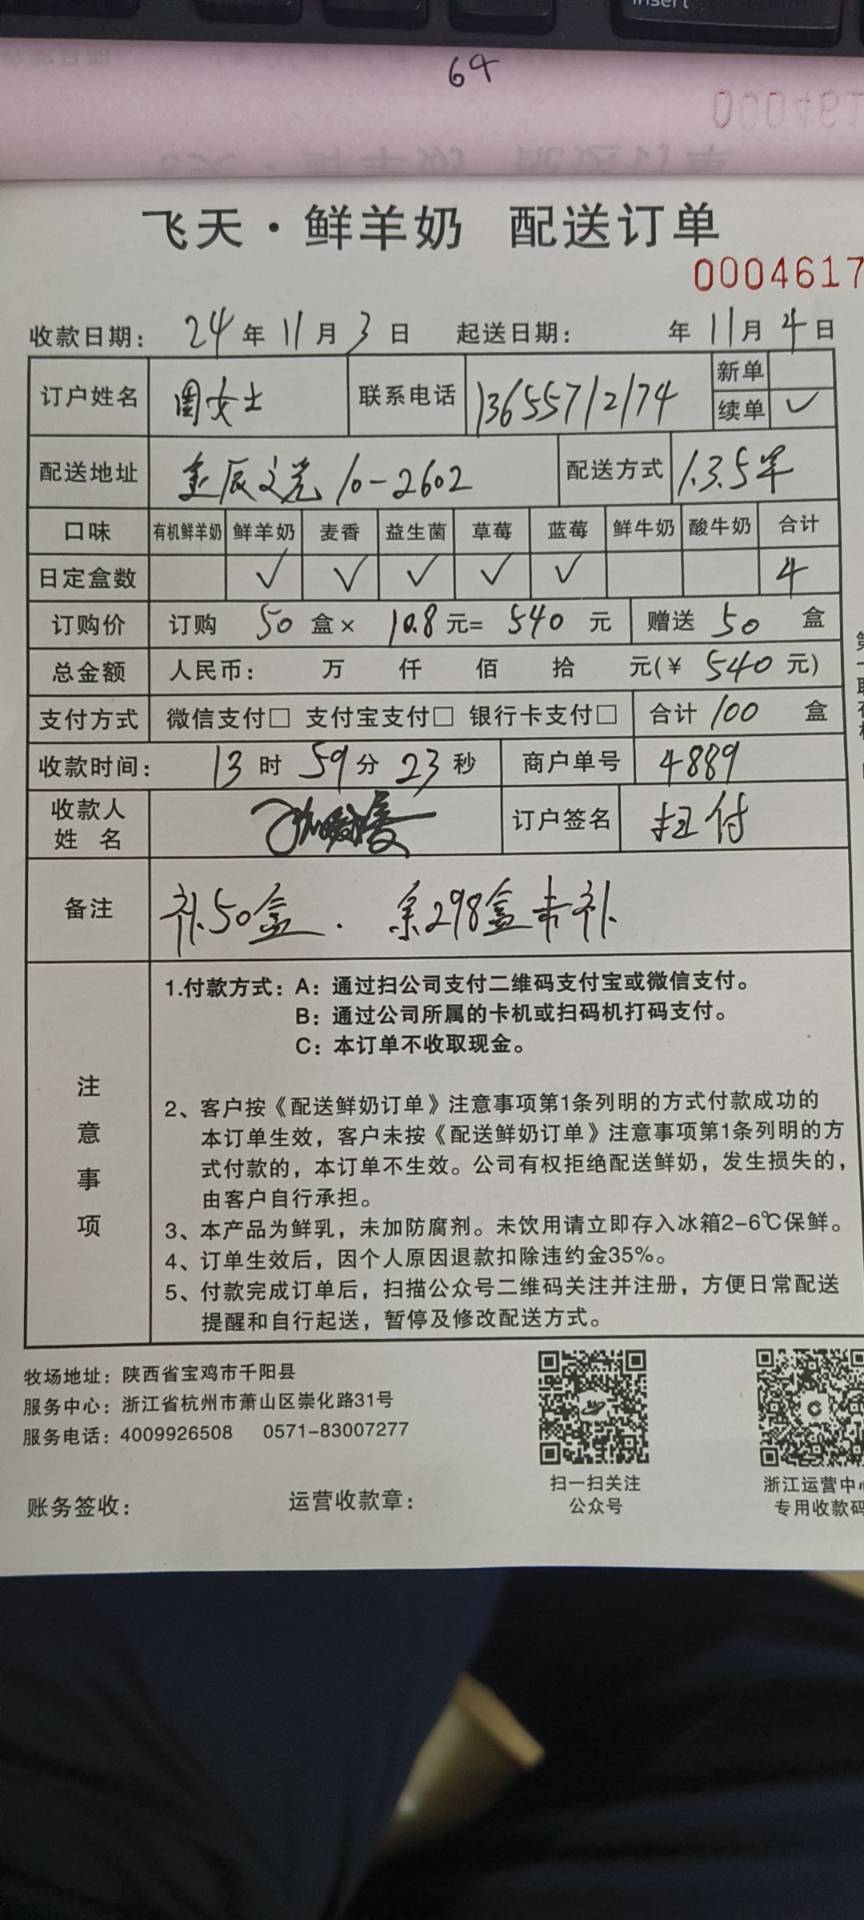 Insert
64
飞天·鲜羊奶 配送订单
0004617
收款日期: 24年11月3日 起送日期: 年11月4日
订户姓名 周女士 联系电话 13655712174 新单
续单 ✓
配送地址 金辰文苑10-2602 配送方式 1.3.5早
口味 有机鲜羊奶 鲜羊奶 麦香 益生菌 草莓 蓝莓 鲜牛奶 酸牛奶 合计
日定盒数 ✓ ✓ ✓ ✓ ✓ 4
订购价 订购 50 盒× 10.8 元= 540 元 赠送 50 盒
总金额 人民币: 万 仟 佰 拾 元(¥ 540 元)
支付方式 微信支付□ 支付宝支付□ 银行卡支付□ 合计 100 盒
收款时间: 13时59分23秒 商户单号 4889
收款人
姓 名 订户签名 扫付
备注 补50盒. 余298盒未补
注意事项
1.付款方式: A: 通过扫公司支付二维码支付宝或微信支付。
B: 通过公司所属的卡机或扫码机打码支付。
C: 本订单不收取现金。
2、客户按《配送鲜奶订单》注意事项第1条列明的方式付款成功的
本订单生效，客户未按《配送鲜奶订单》注意事项第1条列明的方
式付款的，本订单不生效。公司有权拒绝配送鲜奶，发生损失的，
由客户自行承担。
3、本产品为鲜乳，未加防腐剂。未饮用请立即存入冰箱2-6℃保鲜。
4、订单生效后，因个人原因退款扣除违约金35%。
5、付款完成订单后，扫描公众号二维码关注并注册，方便日常配送
提醒和自行起送，暂停及修改配送方式。
牧场地址: 陕西省宝鸡市千阳县
服务中心: 浙江省杭州市萧山区崇化路31号
服务电话: 4009926508 0571-83007277
扫一扫关注
公众号
浙江运营中心
专用收款码
账务签收: 运营收款章: